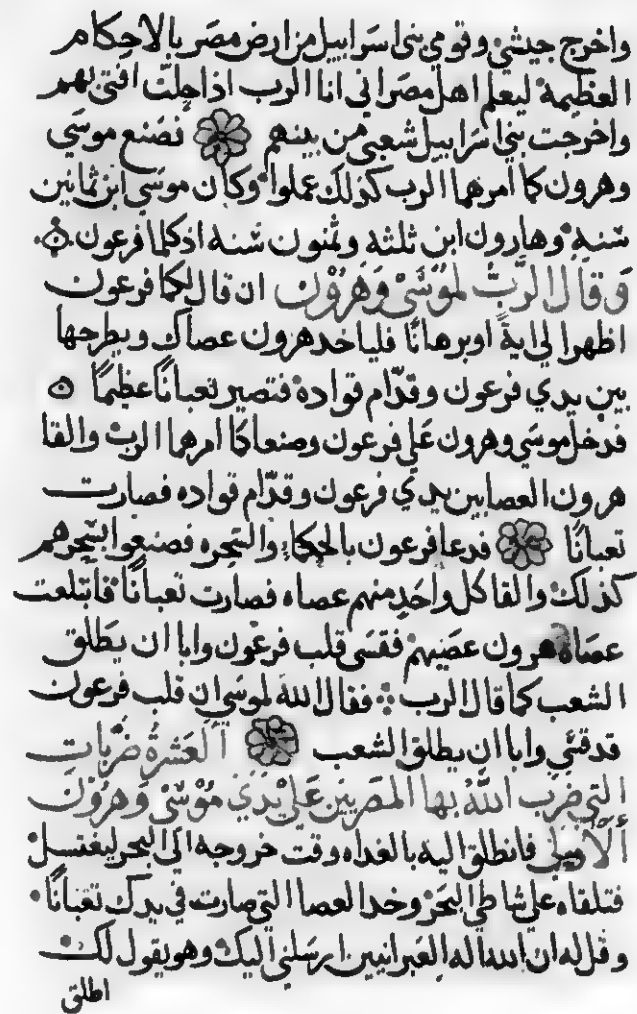 واخرج جيشي وقومي بنى اسراييل من ارض مصر بالاحكام
العظيمة ليعلم اهل مصر اني انا الرب اذا حلت افتى بهم
واخرجت بني اسراييل شعبي من بينهم فصنع موسي
وهرون كما امرهما الرب كذلك عملوا وكان موسي ابن ثمانين
سنة وهارون ابن ثلثه وثمنون سنه اذ كلما فرعون
وقال الرب لموسى وهرون ان قال لكما فرعون
اظهرا لي اية او برهانا فلياخد هرون عصاك ويطرحها
بين يدي فرعون وقدام قواده فتصير تعبانا عظيما
فدخل موسي وهرون علي فرعون وصنعا كما امرهما الرب والقا
هرون العصا بين يدي فرعون وقدام قواده فصارت
تعبانا فدعا فرعون بالحكماء والسحره فصنعوا بسحرهم
كذلك والقا كل واحد منهم عصاه فصارت تعبانا فابتلعت
عصاة هرون عصيهم فقسى قلب فرعون وابا ان يطلق
الشعب كما قال الرب فقال الله لموسي ان قلب فرعون
قد قسي وابا ان يطلق الشعب العشرة ضربات
التي ضرب الله بها المصريين علي يدي موسى وهرون
الاولي فانطلق اليه بالغداه وقت خروجه الى البحر ليغتسل
فتلقاه على شاطي البحر وخد العصا التي صارت في يدك تعبانا
وقل له ان الله اله العبرانيين ارسلني اليك وهو يقول لك
اطلق